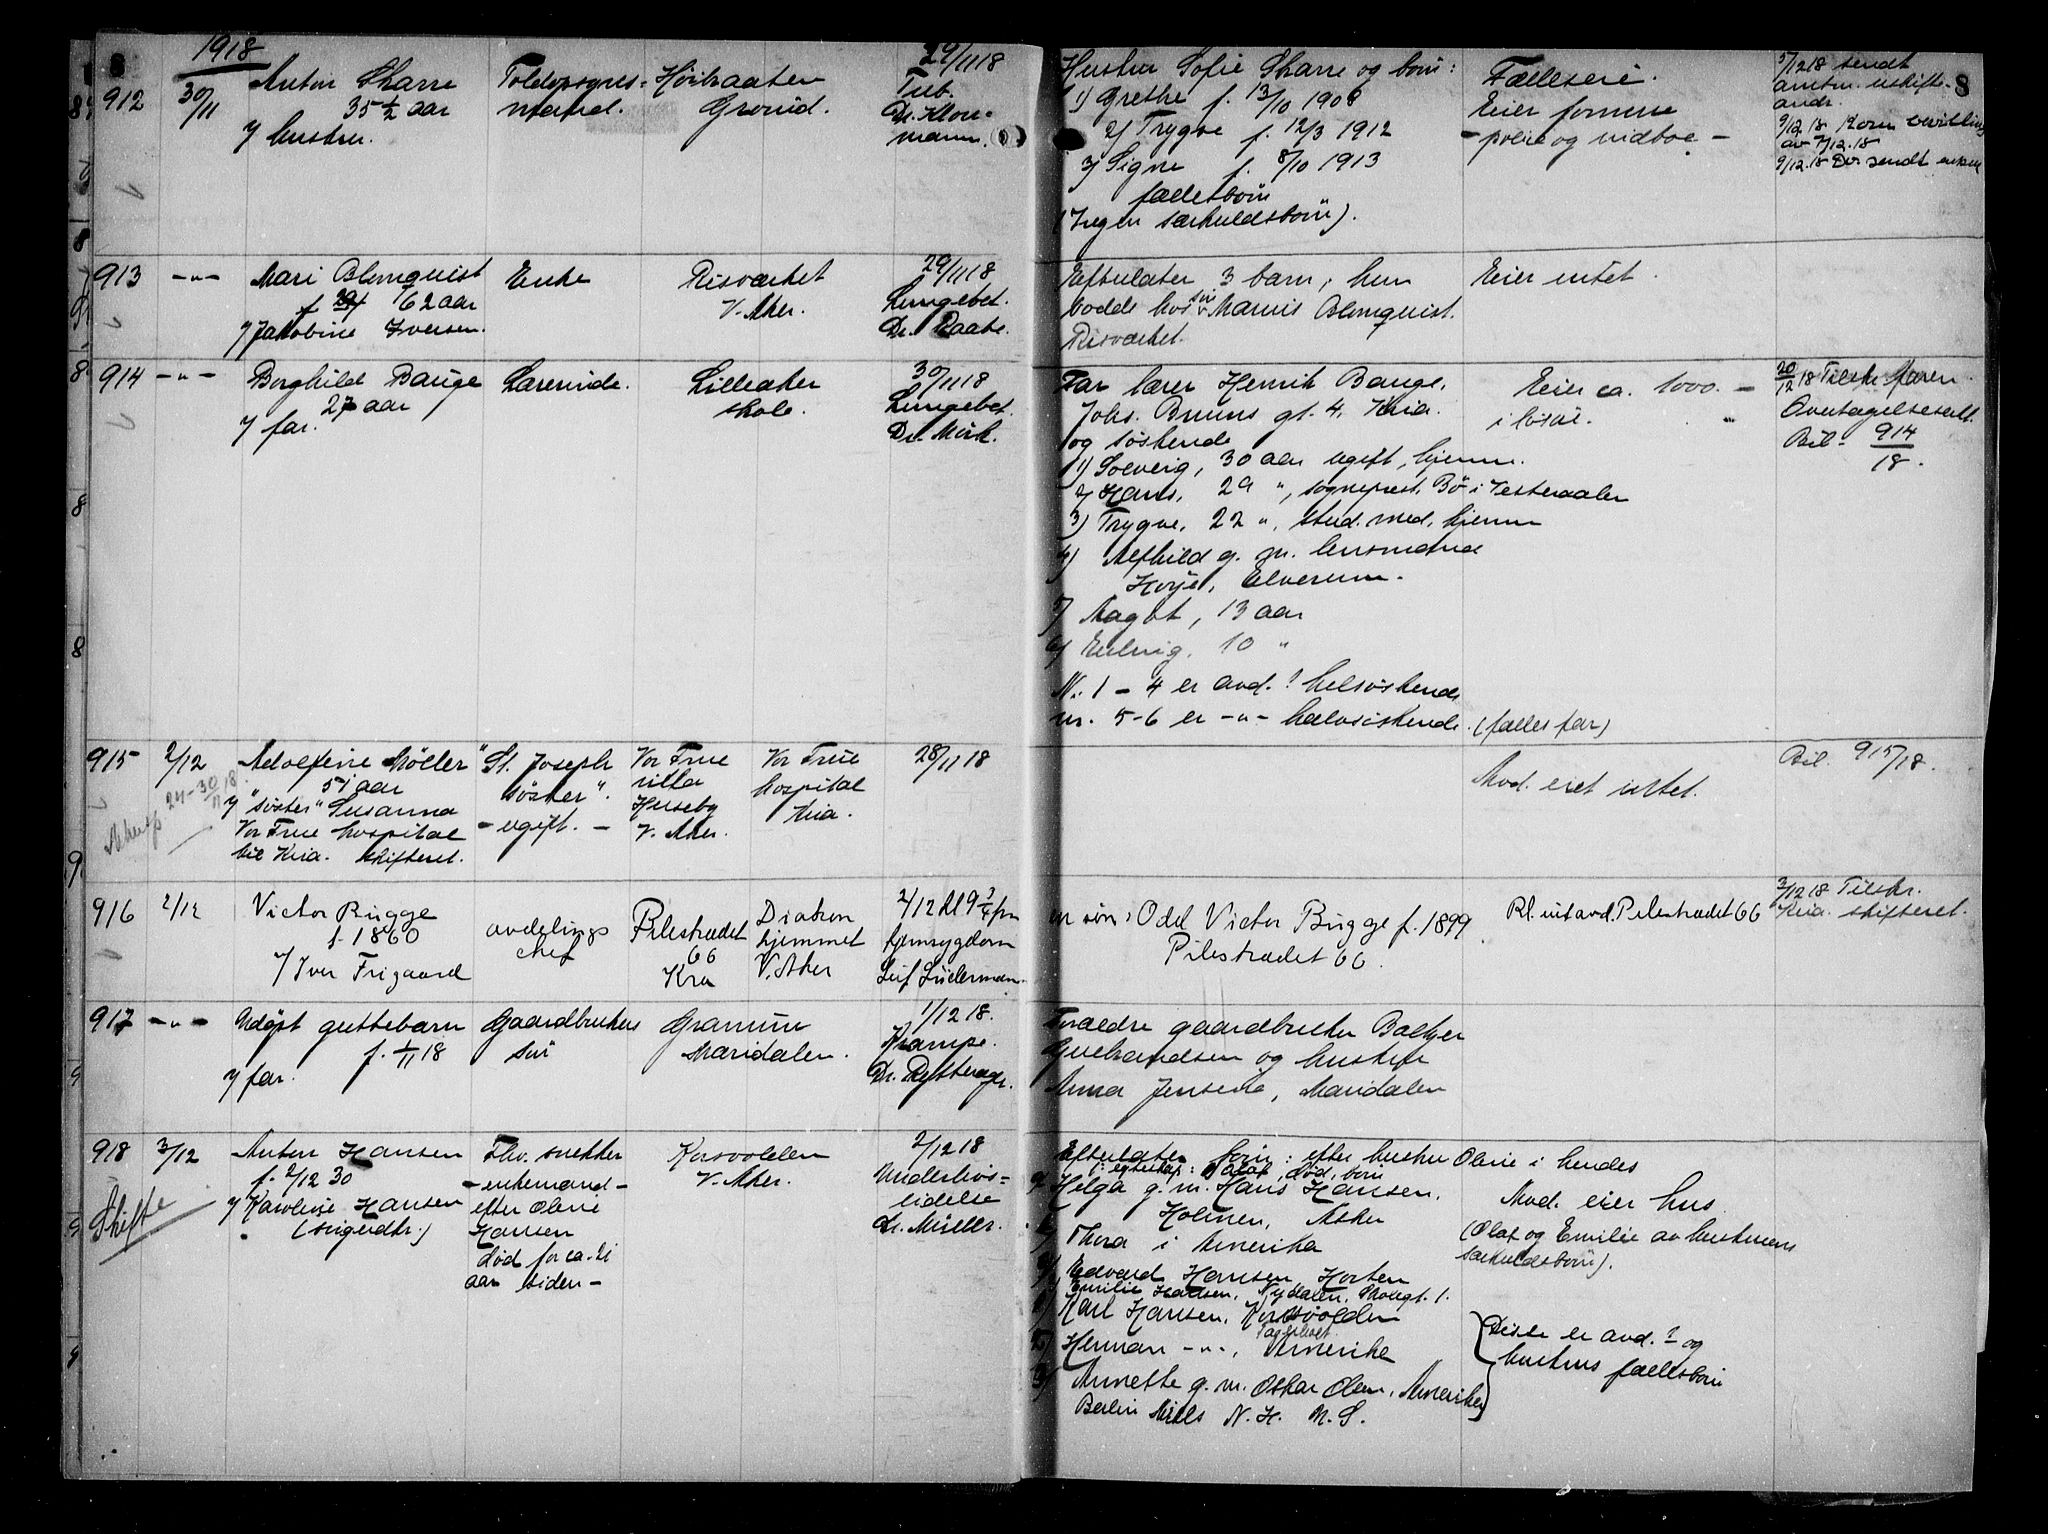 1918
912
30/11
Anton Skarre
35 1/2 aar
v/ hustru.
Toldopsynsmand.
Høibraaten
Grorud.
29/11 18
Tub.
Dr. Klou-
mann.
Hustru Sofie Skarre og børn:
1) Grethe f. 13/10 1908
2) Trygve f. 12/3 1912
3) Signe f. 8/10 1913
fællesbørn
(Ingen særkuldsbørn).
Fælleseie.
Eier formue
- polise og indbo -
5/12 18 sendt
amtm. uskift-
andr.
9/12 18 Kom bevilling
av 7/12.18
9/12.18 Do. sendt enken
8
913
-"-
Mari Blomquist
62 aar
v/ Jakobine Iversen.
Enke
Risværket
V. Aker.
29/11 18
Lungebet.
Dr. Raabe.
Efterlater 3 barn, hun
bodde hos søn Marius Blomquist.
Risværket.
Eier intet.
914
-"-
Borghild Bauge
27 aar
v/ far.
Lærerinde.
Lilleaker
skole.
30/11 18
Lungebet.
Dr. Mørk.
Far lærer Henrik Bauge,
Johs. Bruuns gt. 4, Kria.
og søskende
1) Solveig, 30 aar ugift, hjemme.
2) Hans, 29 ", sogneprest, Bø i Vesteraalen
3) Trygve, 22 ", stud. med. hjemme
4) Alfhild g. m. lensmand
Hoyé, Elverum.
5) Magbt, 13 aar
6) 10 "
Nr. 1 - 4 er avd.s helsøskende
nr. 5-6 er -"- halvsøskende. (fælles far)
Eier ca. 1000. -
i løsøre.
20/12 18 Tilskr. faren.
Overtagelseserkl.
Bil. 914/18.
915
2/12
Adolfine Möller
51 aar
v/ "søster" Susanna
Vor Frue hospital
til Kria. skifteret.
"St. Joseph
søster".
- ugift. -
Vor Frue
villa
Huseby
V. Aker.
Vor Frue
hospital
Kria.
28/11 18
Avd. eiet intet.
Bil. 915/18.
916
2/12
Victor Bugge
f. 1860
v/ Iver Frigaard
avdelings
chef
Pilestrædet
66
Kra
Diakon
hjemmet
V. Aker
2/12 kl 9 3/4 fm
hjernesygdom
Leif Lüderman.
en søn: Odd Victor Bugge f. 1899
Pilestrædet 66.
Bl. uit avd. Pilestrædet 66
3/12 18 Tilskr.
Kria. skifteret.
917
-"-
Udøpt guttebarn
f. 1/11 18
v/ far.
Gaardbrukers
søn
Granum
Maridalen.
1/12 18.
Krampe.
Forældre gaardbruker
og hustru
Anna Jensine, Maridalen
918
3/12
Skifte
Anton Hansen
f. 2/12 30
v/ Karoline Hansen
(svigerdtr.)
Fhv. snekker
- enkemand -
efter Oline
Hansen
død for ca. 21
aar siden -
Korsvolden
V. Aker.
2/12 18
Underlivs-
lidelse
Dr. Müller.
Efterlater børn: efter hustru Oline i hendes
Helga g. m. Hans Hansen,
Holmen, Asker
Thora i Amerika
Edvard Hansen, Horten
Emilie Hansen, Nydalen, Skougt. 1.
Karl Hansen, Korsvolden
Herman -"-, Amerika
Annette g. m. Oskar Olsen, Amerika
Avd. eier hus
(Olaf og Emilie av hustruens
særkuldsbørn).
Disse er avd.s og
hustrus fællesbørn